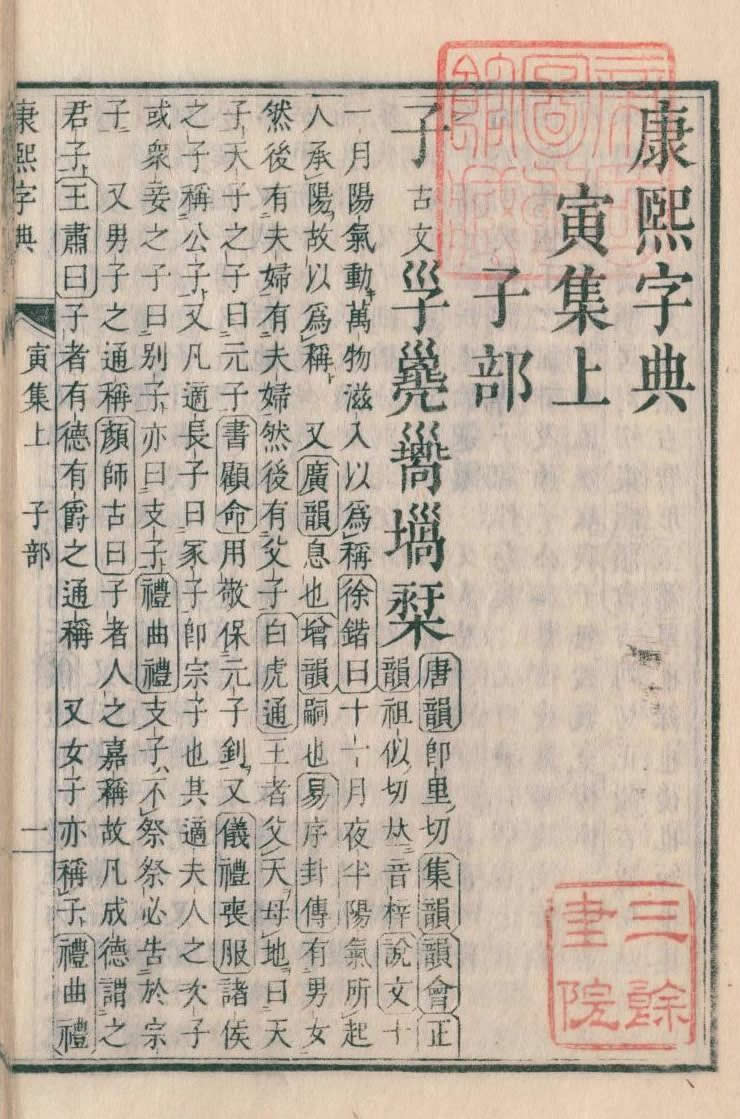 康熙字典
寅集上
子部
子古文㜽
唐韻即里切集韻韻會正
韻祖似切𠀤音梓說文十
一月陽氣動萬物滋入以為稱徐鍇曰十一月夜半陽氣所起
人承陽故以為稱 又廣韻息也增韻嗣也易序卦傳有男女
然後有夫婦有夫婦然後有父子白虎通王者父天母地曰天
子天子之子曰元子書顧命用敬保元子釗又儀禮喪服諸侯
之子稱公子又凡適長子曰冢子卽宗子也其適夫人之次子
或衆妾之子曰別子亦曰支子禮曲禮支子不祭祭必告於宗
子 又男子之通稱顏師古曰子者人之嘉稱故凡成德謂之
君子王肅曰子者有德有爵之通稱 又女子亦稱子禮曲禮
康熙字典 寅集上 子部 一
三餘
書院